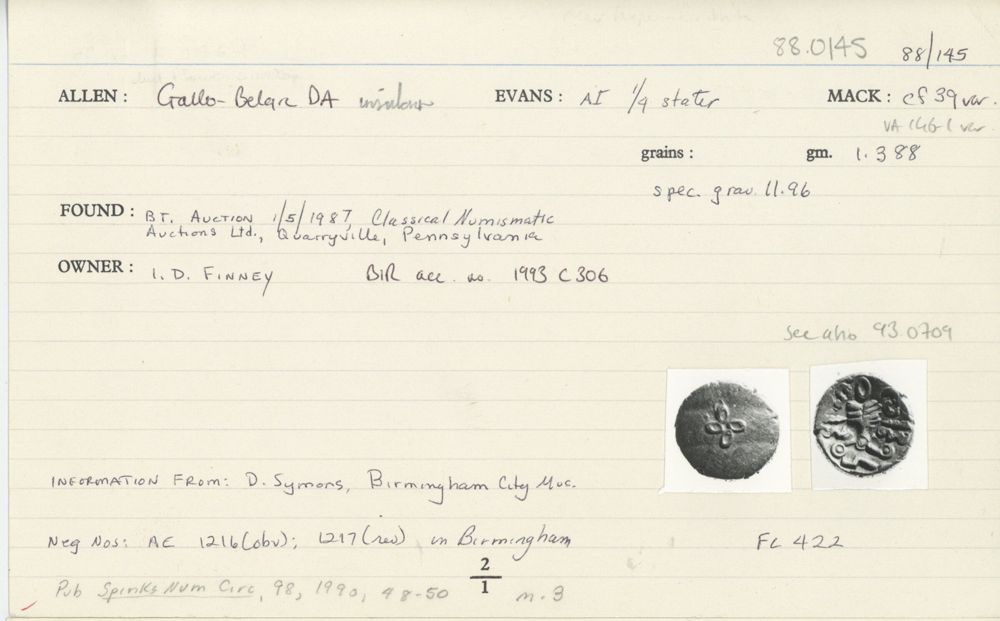 88.0145 88/145
ALLEN : Gallo-Belgic DA EVANS : AI 1/4 stater MACK : cf 39 var.
VA 146-1 var
grains : gm. 1.388
spec. grav. 11.96
FOUND : BT. AUCTION 1/5/1987, Classical Numismatic
Auctions Ltd., Quarryville, Pennsylvania
OWNER : I. D. FINNEY BIR acc. no. 1993 C 306
See also 93.0709
INFORMATION FROM: D. Symons, Birmingham City Mus.
Neg Nos: AE 1216 (obv); 1217 (rev) in Birmingham FL 422
2
1
Pub Spinks Num Circ, 98, 1990, 48-50 n. 3